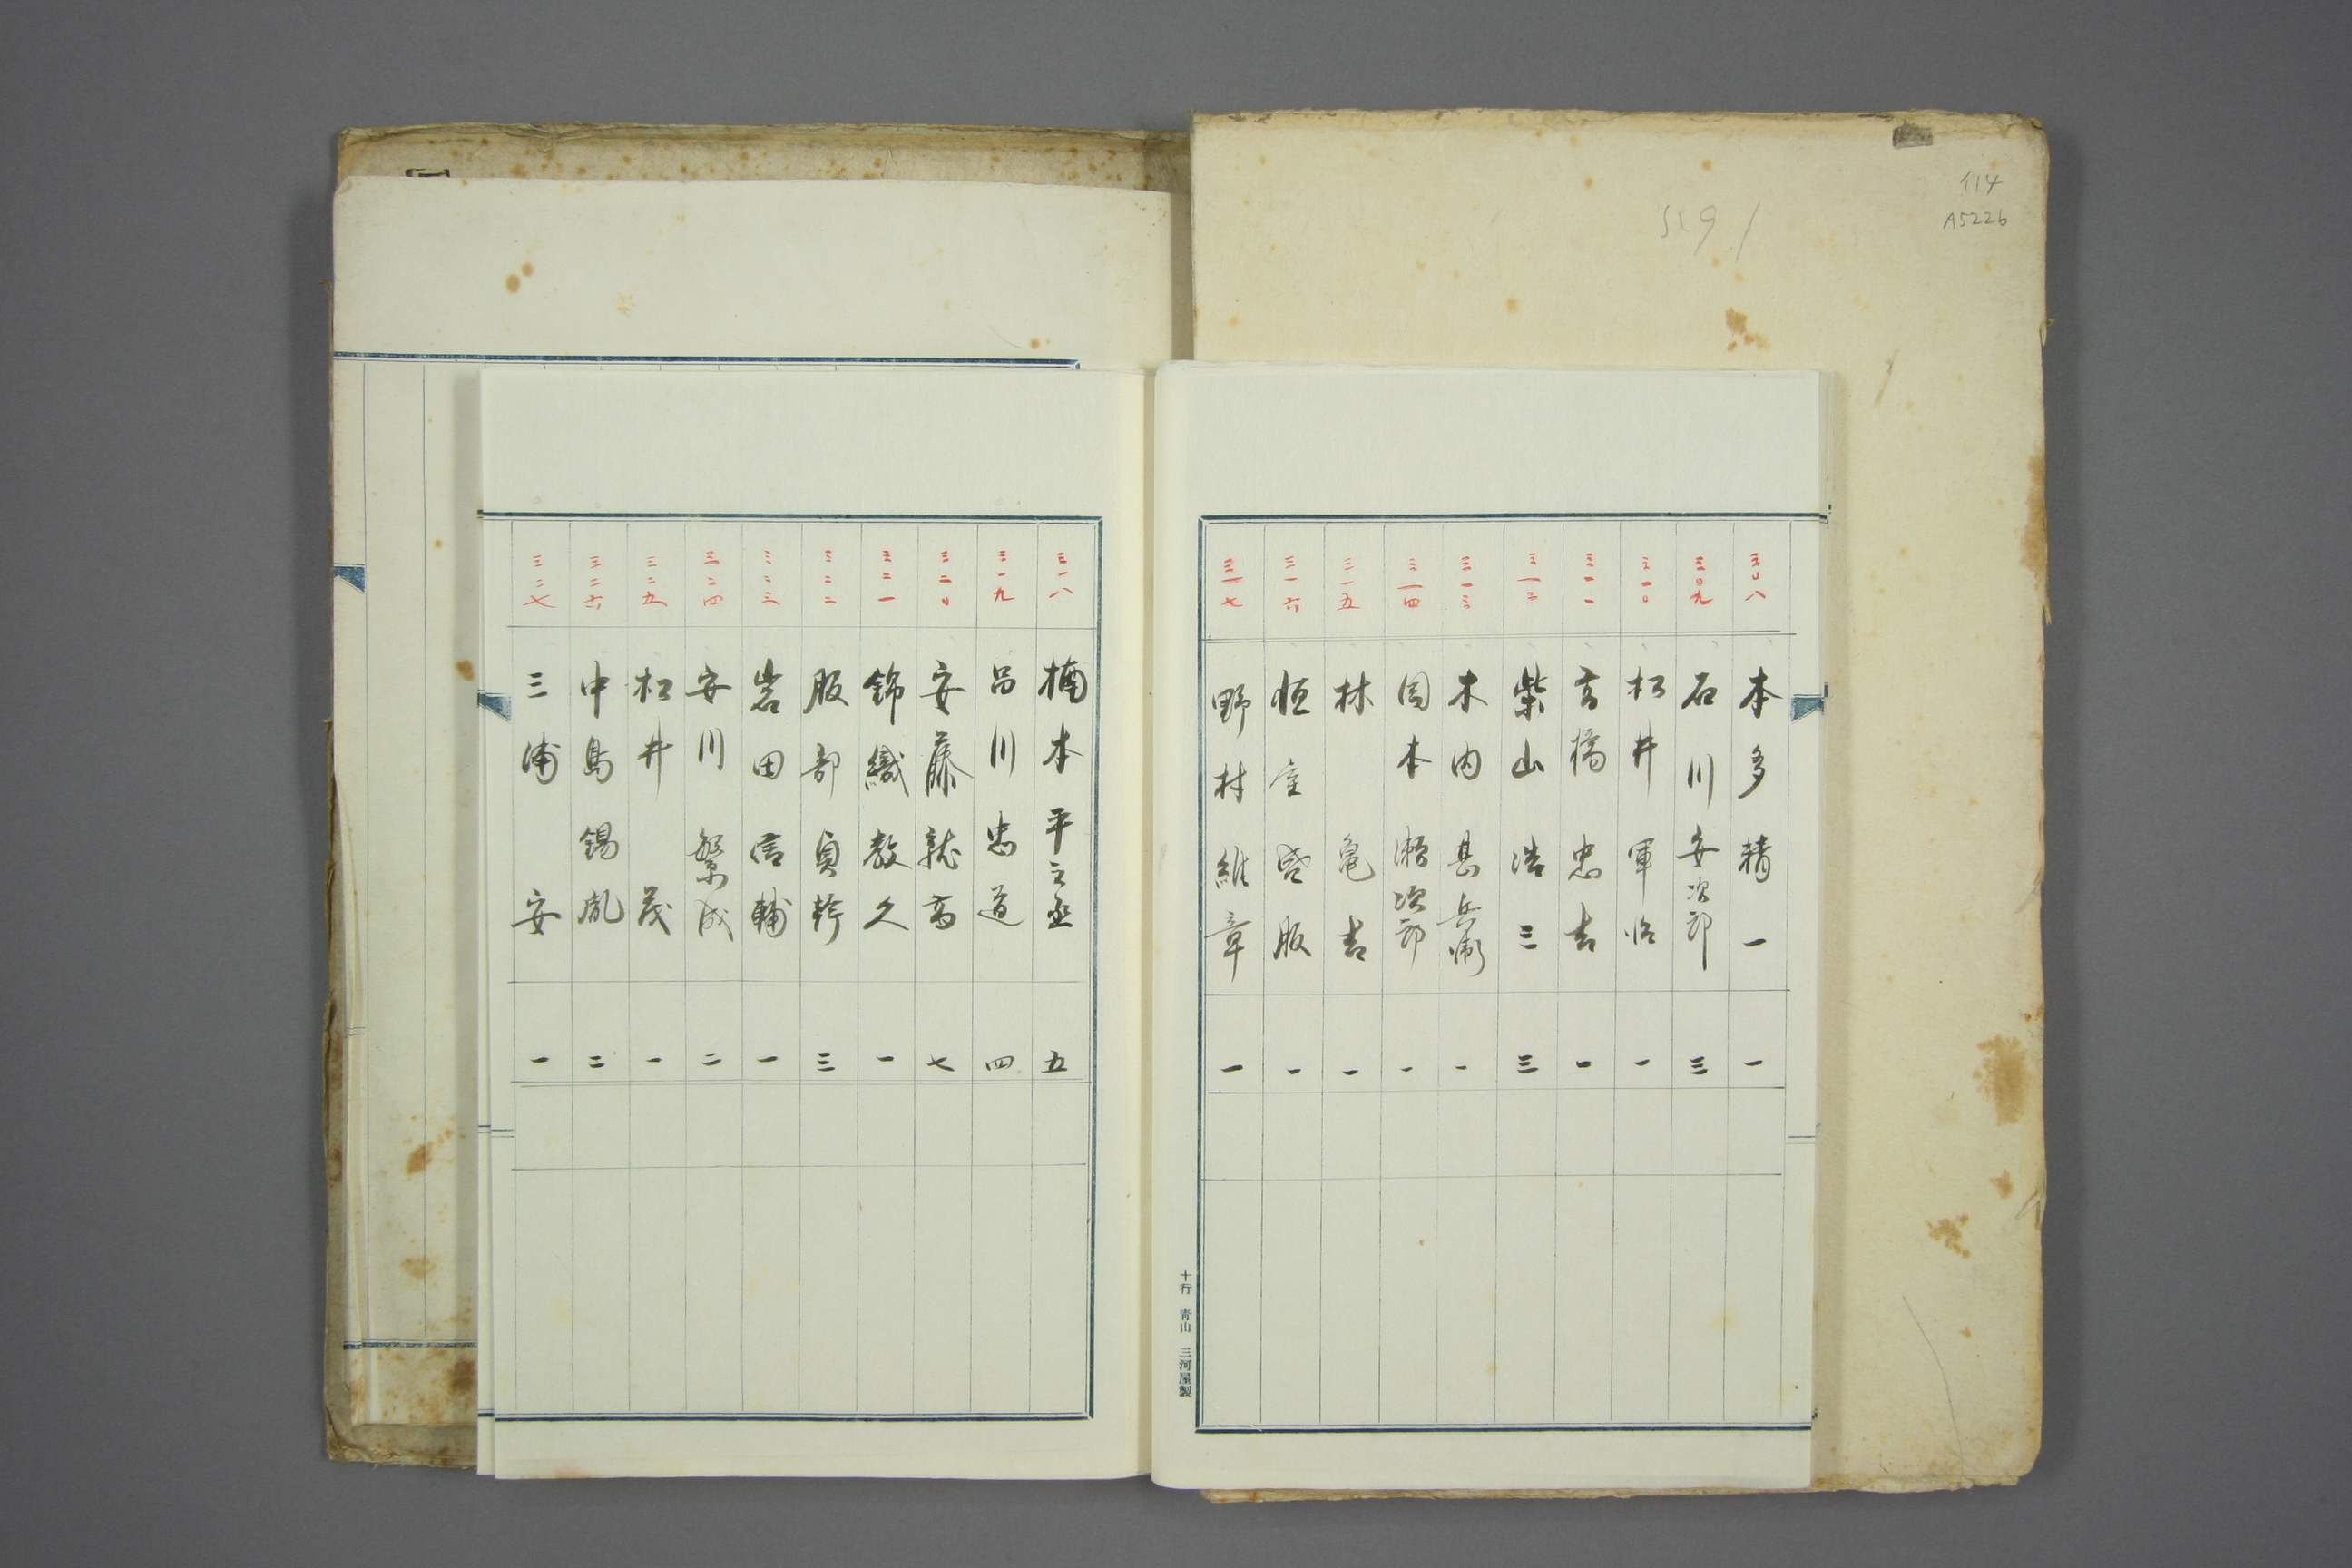 114
A5226
三〇八 本多精一 一
三〇九 石川安次郎 三
三一〇 松井軍治 一
三一一 高橋忠吉 一
三一二 柴山浩三 三
三一三 木内甚兵衛 一
三一四 岡本瀬次郎 一
三一五 林亀吉 一
三一六 恒室盛服 一
三一七 野村維章 一
十行 青山 三河屋製
三一八 楠本平之丞 五
三一九 呂川忠道 四
三二〇 安藤就高 七
三二一 錦織教久 一
三二二 服部貞幹 三
三二三 岩田信輔 一
三二四 安川繁成 二
三二五 松井茂 一
三二六 中島錫胤 二
三二七 三浦安 一